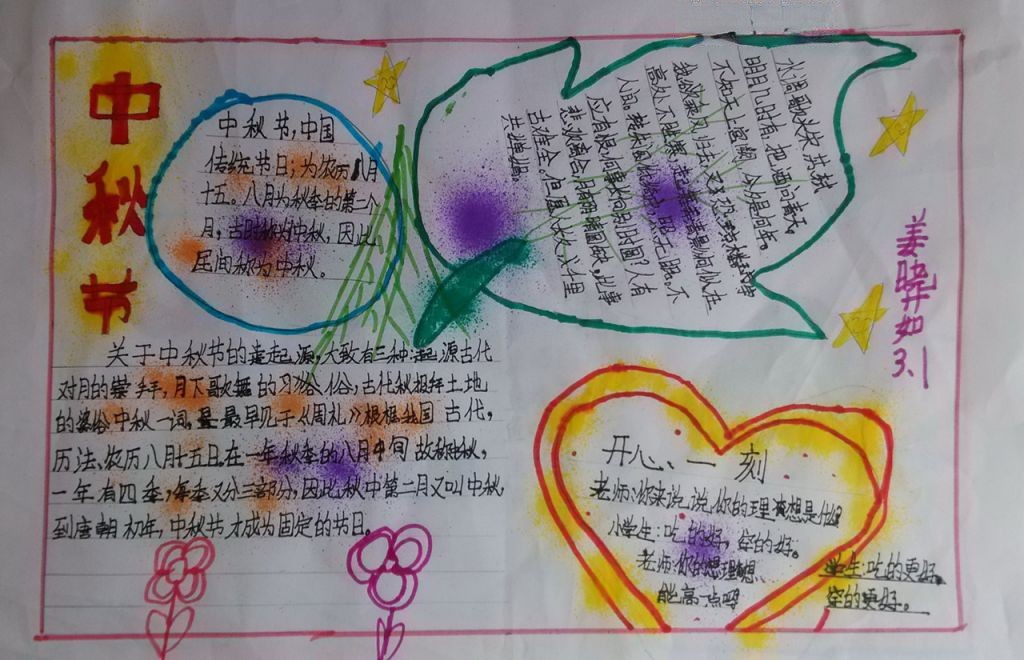 中秋节
中秋节,中国
传统节日;为农历八月
十五。八月为秋季的第二个
月,古时称为仲秋,因此
民间称为中秋。
水调歌头 苏轼
明月几时有,把酒问青天。
不知天上宫阙,今夕是何年。
我欲乘风归去,又恐琼楼玉宇
高处不胜寒,起舞弄清影何似在
人间。转朱阁,低绮户,照无眠。不
应有恨,何事长向别时圆人有
悲欢离合,月有阴晴圆缺,此事
古难全。但愿人长久,千里
共婵娟。
姜晓卉如
3.1
关于中秋节的起源,大致有三种:起源古代
对月的崇拜,月下歌舞的习俗,古代秋报拜土地
的 中秋一词,最早见于《周礼》根据我国古代,
历法、农历八月十五日。在一年秋季的八月中间故称中秋,
一年有四季,每季又分三部分,因此秋中第二月又叫中秋
到唐朝初年,中秋节才成为固定的节日。
开心、一刻
老师:你来说说,你的理想是什么
小学生:吃的好,穿的好。
老师:你的理想
能高一点吗
学生:吃的更好,
穿的更好。